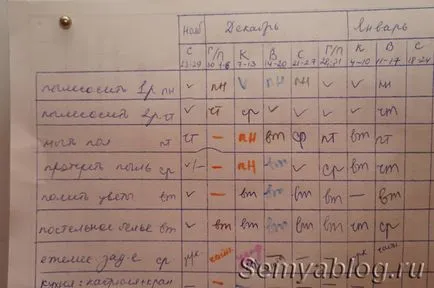 нояб Декабрь Январь
С Г/П К В С Г/П К В С
23-29 30-6 7-13 14-20 21-27 28-3 4-10 11-17 18-24
пылесосить 1р. пн ✓ пн ✓ пн пн ✓ ✓ пн
пылесосить 2р. чт ✓ чт ср ✓ ✓ ✓ ✓ чт
мыть пол пт чт – пн вт ср пт вт пт
протереть пыль ср ✓/– – пн вт ✓ ср вт чт
полить цветы вт ✓ – вт вт ✓ вт – вт
постельное белье вт ✓ вт вт вт ✓ вт чт ср
ср
кухня: кафель+кран
Semyablog.ru